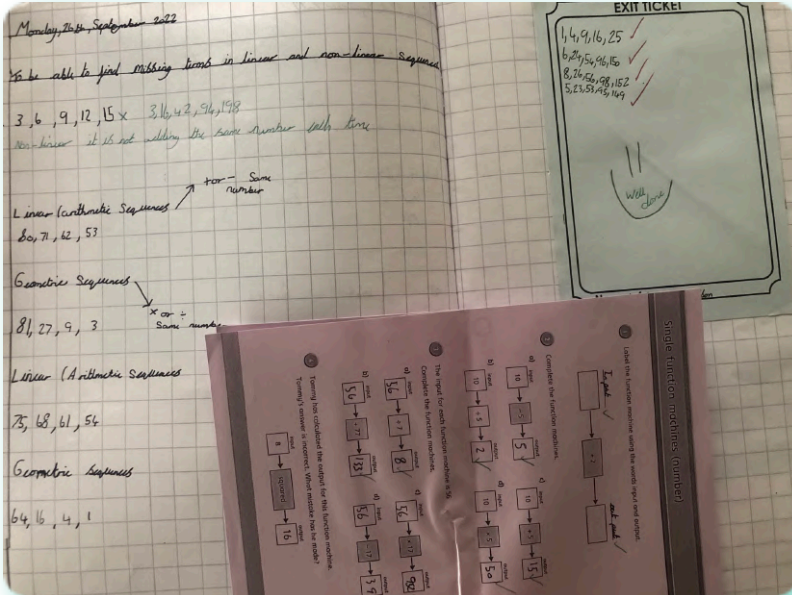 Monday, 26th, September 2022
To be able to find missing terms in linear and non-linear sequences
3, 6, 9, 12, 15 x 3, 16, 42, 94, 198
non-linear it is not adding the same number each time
+ or - Same
number
Linear (arithmetic Sequences
80, 71, 62, 53
Geometric Sequences
x or ÷
Same number
81, 27, 9, 3
Linear (Arithmetic Sequences
75, 68, 61, 54
Geometric Sequences
64, 16, 4, 1
EXIT TICKET
1, 4, 9, 16, 25
6, 24, 54, 96, 150
8, 26, 56, 98, 152
5, 23, 53, 95, 149
Well
done
Single function machines (number)
Label the function machine using the words input and output.
Input
out put
Complete the function machines.
a) input output
10 5
b) input output
10 2
c) input output
10 + 5 15
d) input output
10 × 5 50
The input for each function machine is 56
Complete the function machines.
a) input output
56 ÷ 7 8
b) input output
56 + 77 133
c) input output
56
d) input output
56 - 17 39
Tommy has calculated the output for this function machine.
Tommy's answer is incorrect. What mistake has he made?
input output
8 squared 16